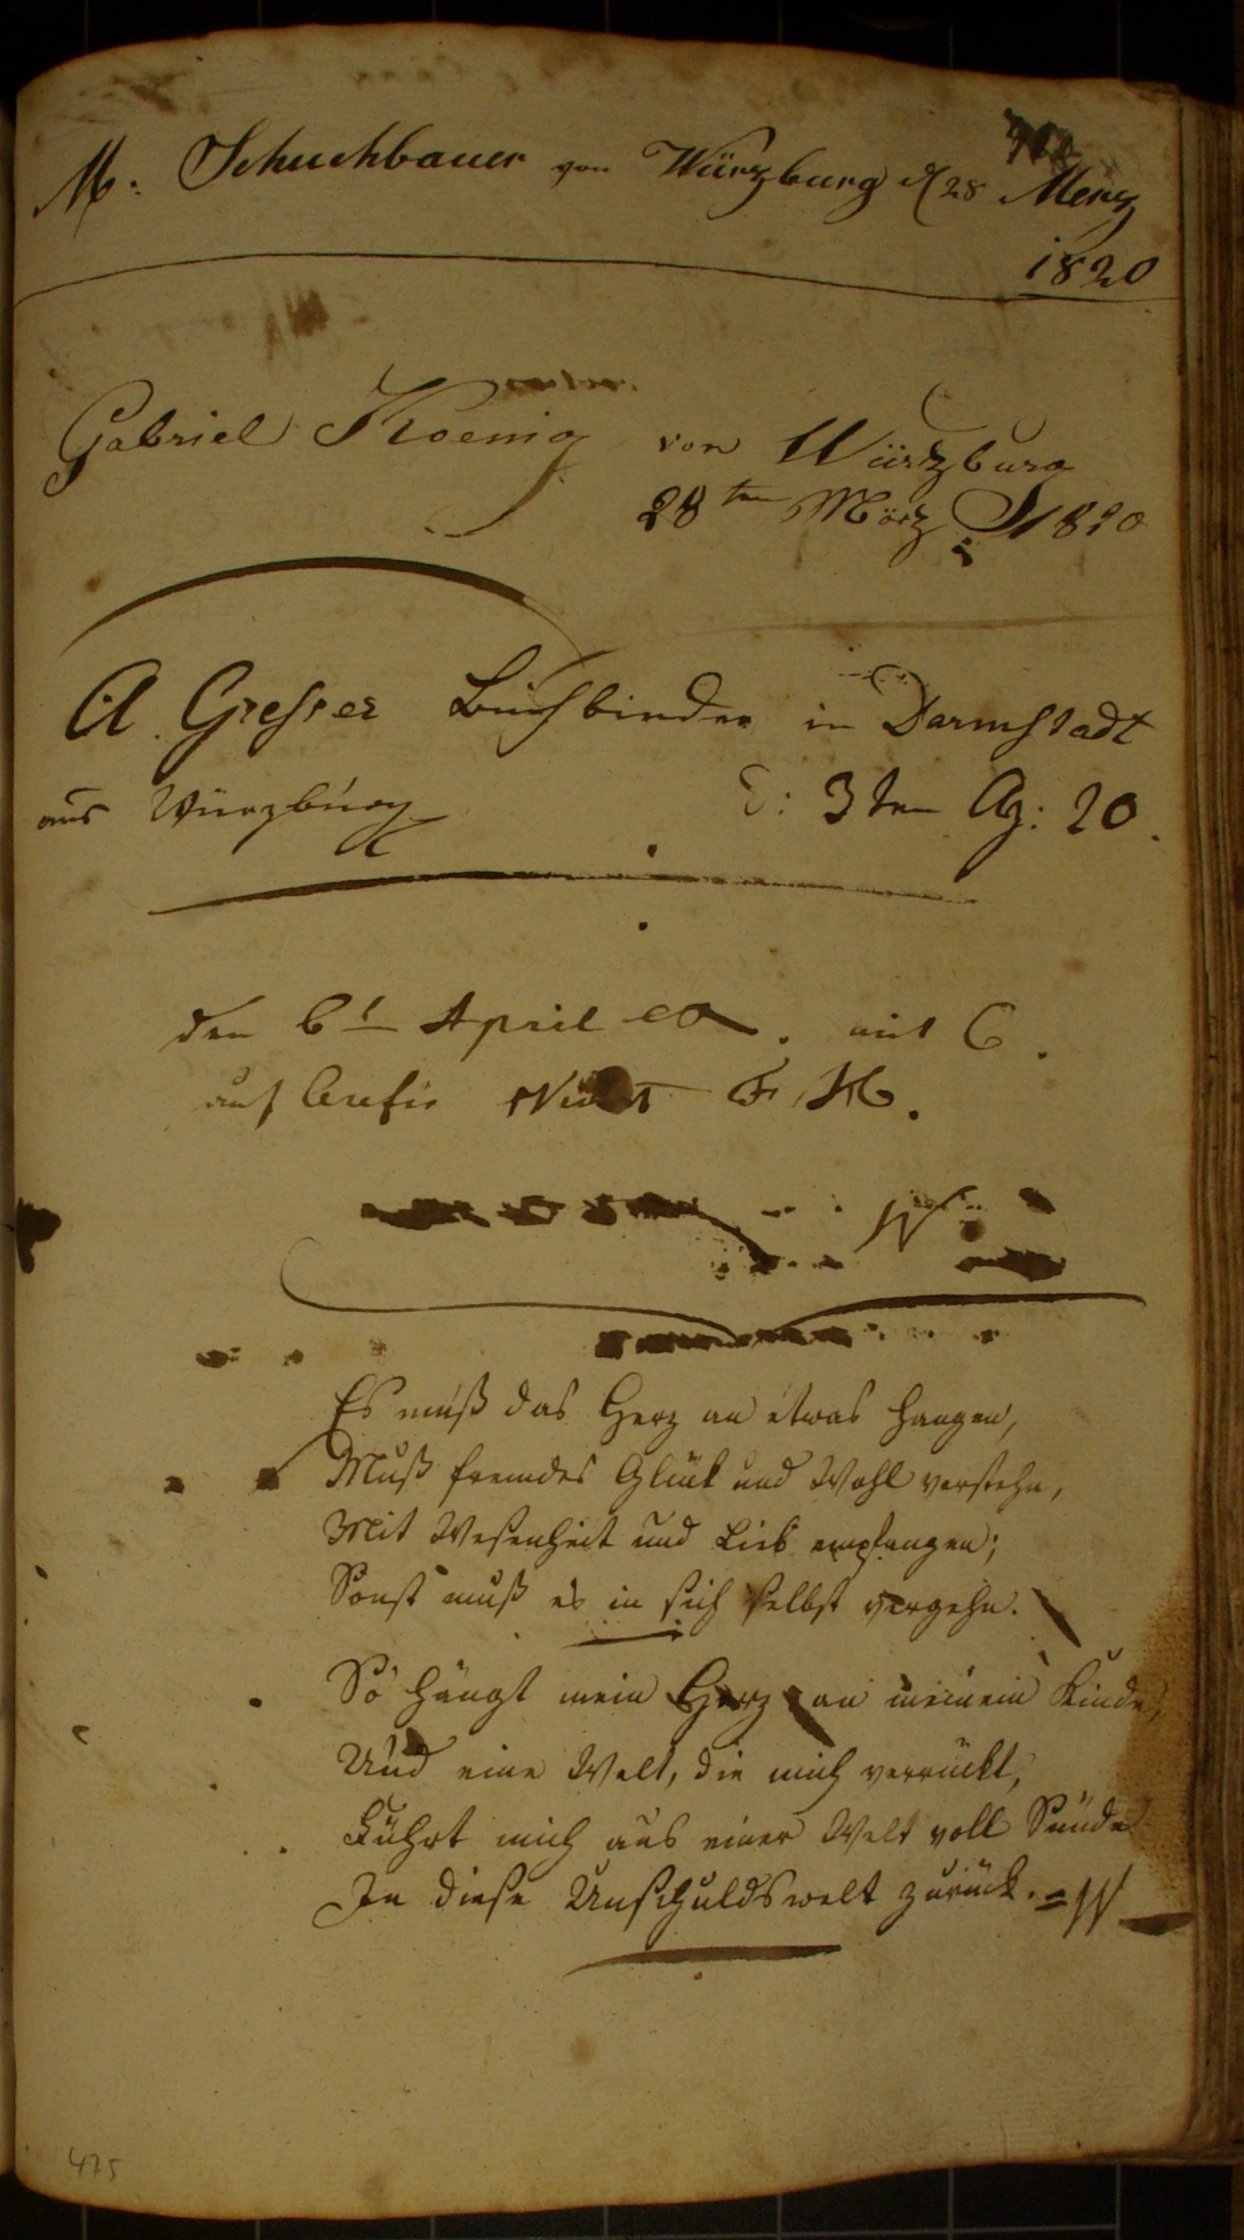 M. Schuchbauer von Würzburg d 28 Merz
1820
Gabriel Koenig von Würtzburg
28ten März 1820
A. Gresser Buchbinder in Darmstadt
aus Würzburg d: 3ten Ap: 20.
den 6t April 20. mit C.
auf F. K.
Es muß das Herz an etwas hangen,
Muß fremdes Glück und Wohl verstehn,
Mit Wesenheit und Lieb empfangen;
Sonst muß es in sich selbst vergehn.
So hängt mein Herz an meinem Kinde,
Und eine Welt, die mich verrückt,
Führt mich aus einer Welt voll Sünde
In diese Unschuldswelt zurück. =
475